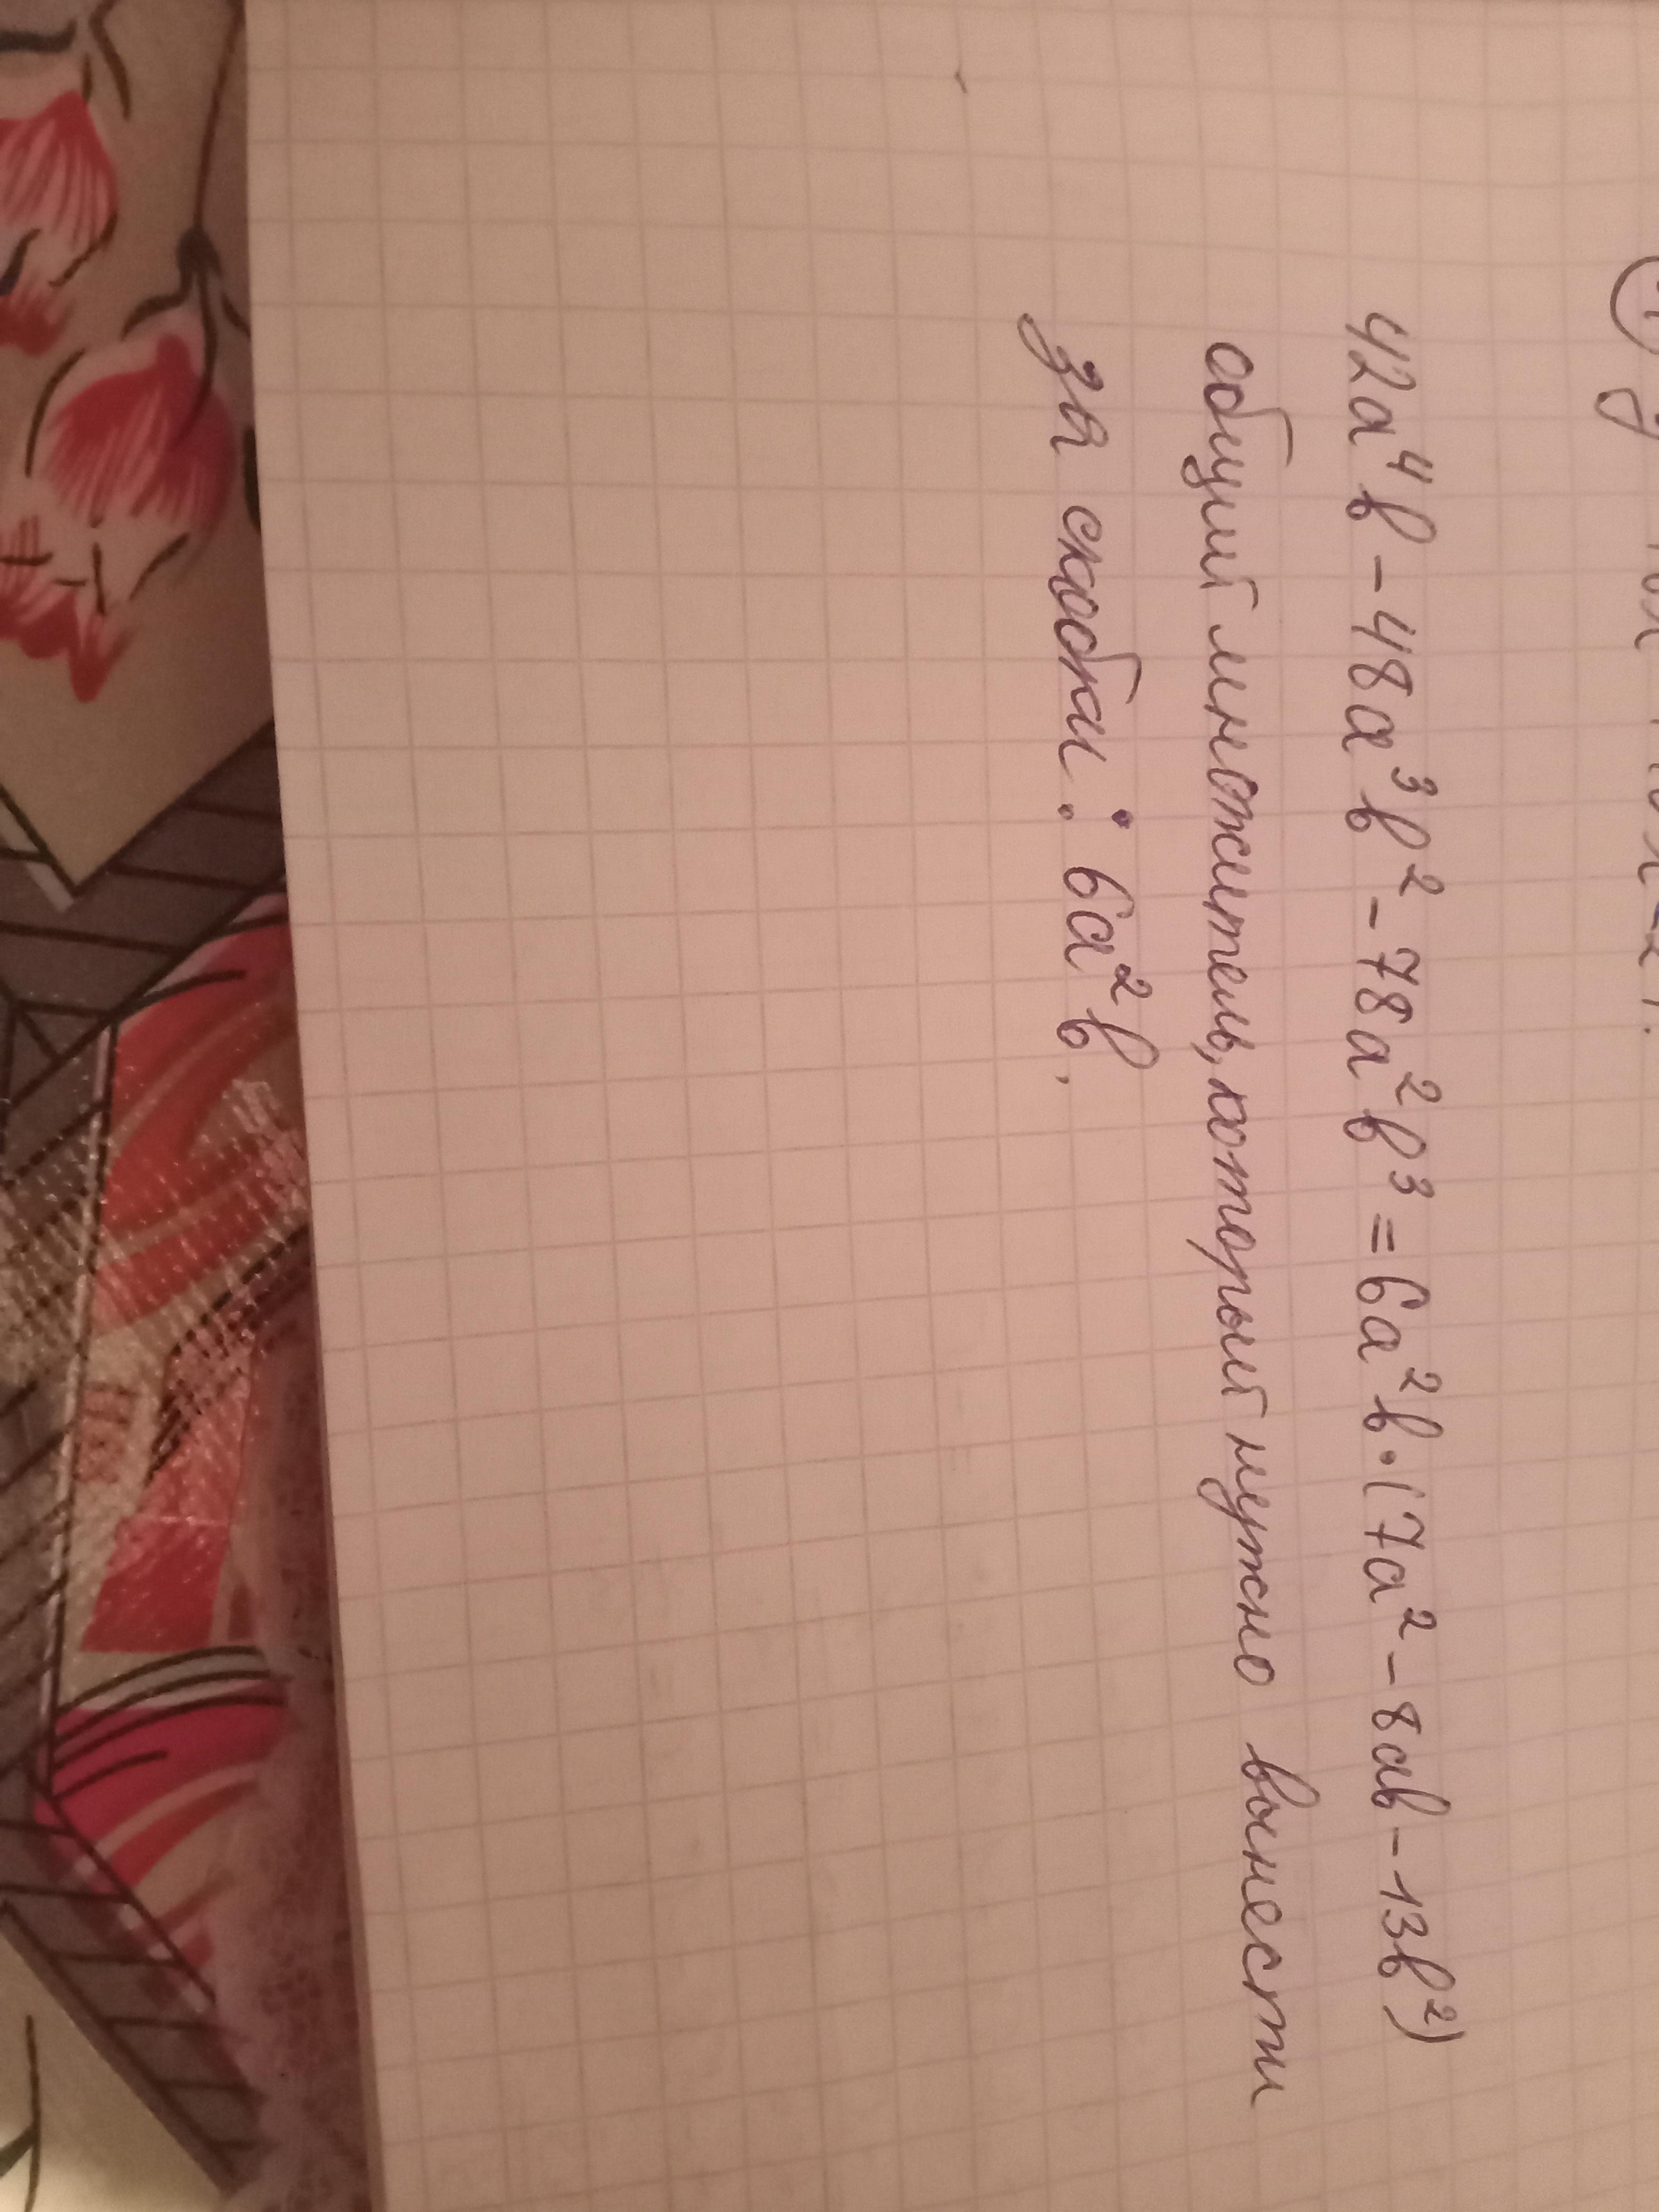 42a⁴b - 48a³b² - 78a²b³ = 6a²b · (7a² - 8ab - 13b²)
общий множитель, который нужно вынести
за скобки : 6a²b.